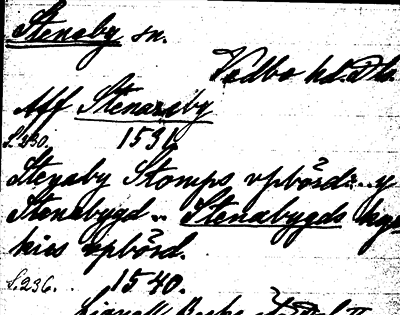 Stenaby sn.
Vedbo hd. Dls.
Aff Stenaraby
S. 230. 1531
Stenaby Stomps vpbörd: y
Stenabygd Stenabygds kyr
kies vpbörd.
S. 236. 1540.